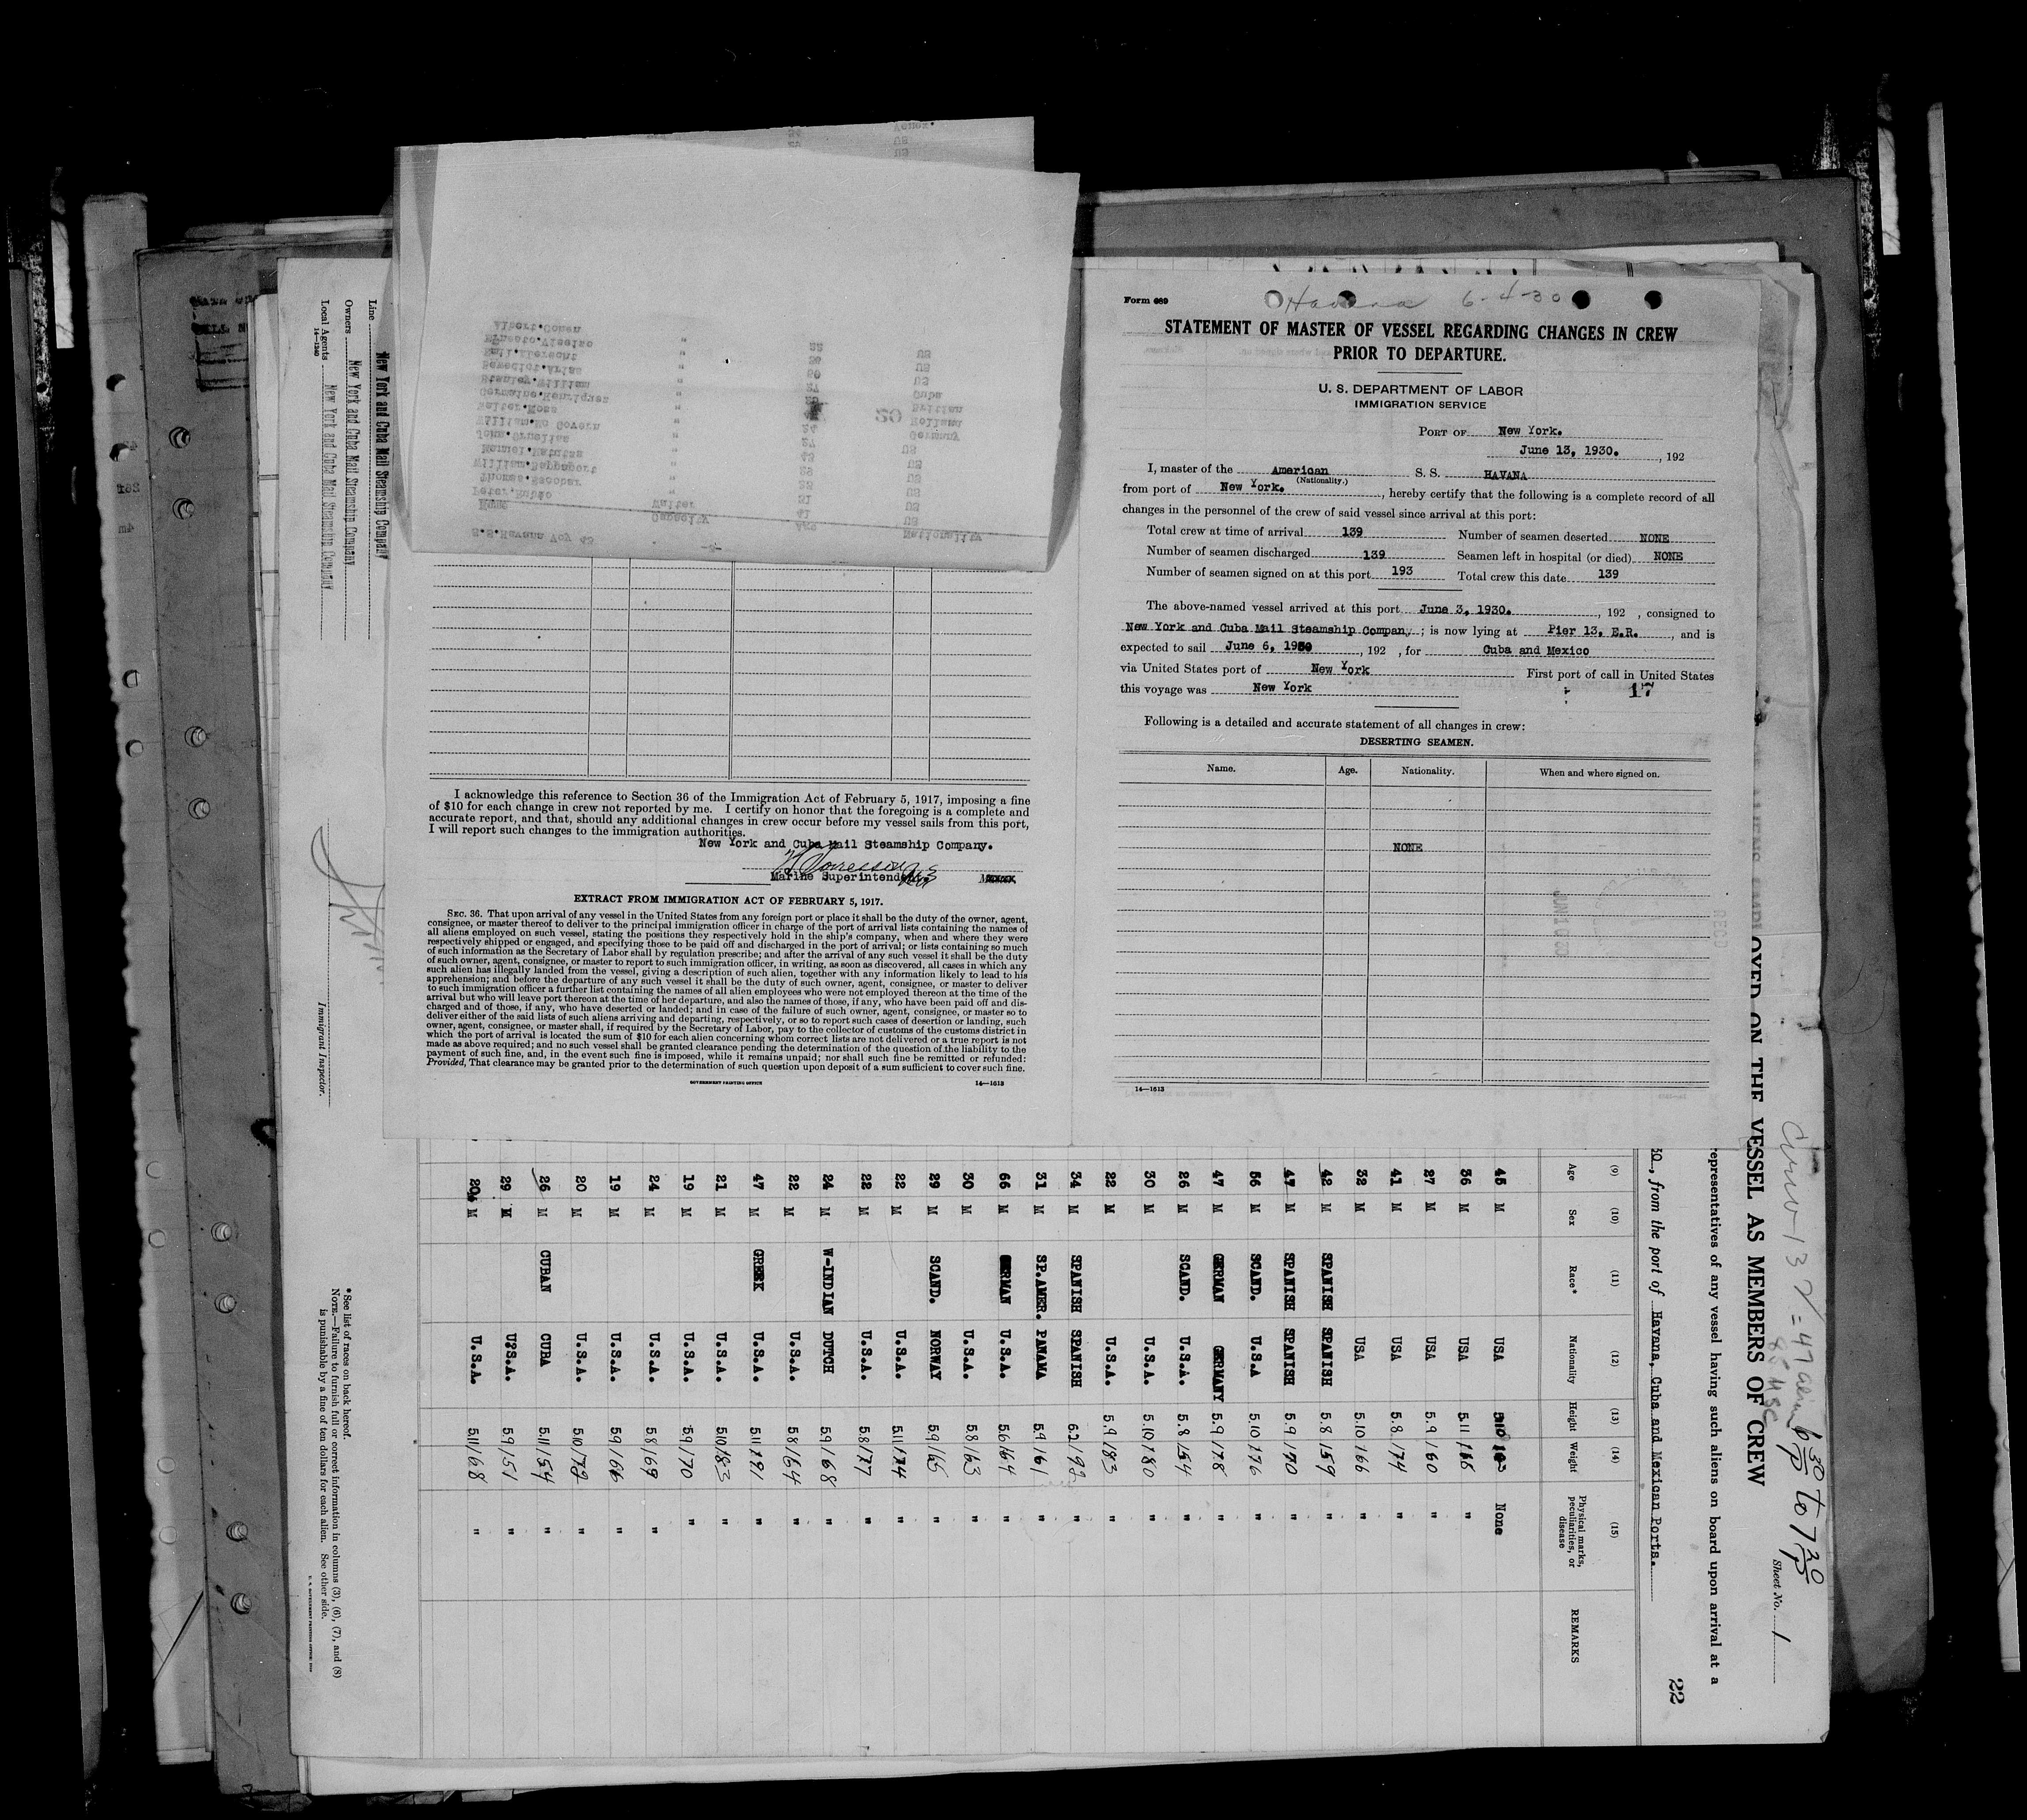 Form 689
Havana 6-4-30
STATEMENT OF MASTER OF VESSEL REGARDING CHANGES IN CREW
PRIOR TO DEPARTURE.
U. S. DEPARTMENT OF LABOR
IMMIGRATION SERVICE
PORT OF New York.
June 13, 1930. , 192
I, master of the American S. S. HAVANA
(Nationality.)
from port of New York. , hereby certify that the following is a complete record of all
changes in the personnel of the crew of said vessel since arrival at this port:
Total crew at time of arrival 139 Number of seamen deserted NONE
Number of seamen discharged 139 Seamen left in hospital (or died) NONE
Number of seamen signed on at this port 193 Total crew this date 139
The above-named vessel arrived at this port June 3, 1930. , 192 , consigned to
New York and Cuba Mail Steamship Company ; is now lying at Pier 13, E.R. , and is
expected to sail June 6, 1930 , 192 , for Cuba and Mexico
via United States port of New York First port of call in United States
this voyage was New York
17
Following is a detailed and accurate statement of all changes in crew:
DESERTING SEAMEN.
Name. Age. Nationality. When and where signed on.
NONE
14—1613
S.S.Havana Voy 45 -2-
Name Capacity Age Nationality
Peter.Rubio Waiter 41 US
Thomas.Escobar " 31 US
William.Rappaport " 23 US
John.Cruslias
William.Mc Govern
Walter.Moss
Germaine.Henriquez
Stanley.William
Benedict.Arias
Albert.Cohen
20
I acknowledge this reference to Section 36 of the Immigration Act of February 5, 1917, imposing a fine
of $10 for each change in crew not reported by me. I certify on honor that the foregoing is a complete and
accurate report, and that, should any additional changes in crew occur before my vessel sails from this port,
I will report such changes to the immigration authorities.
New York and Cuba Mail Steamship Company.
Marine Superintendent.
EXTRACT FROM IMMIGRATION ACT OF FEBRUARY 5, 1917.
SEC. 36. That upon arrival of any vessel in the United States from any foreign port or place it shall be the duty of the owner, agent,
consignee, or master thereof to deliver to the principal immigration officer in charge of the port of arrival lists containing the names of
all aliens employed on such vessel, stating the positions they respectively hold in the ship's company, when and where they were
respectively shipped or engaged, and specifying those to be paid off and discharged in the port of arrival; or lists containing so much
of such information as the Secretary of Labor shall by regulation prescribe; and after the arrival of any such vessel it shall be the duty
of such owner, agent, consignee, or master to report to such immigration officer, in writing, as soon as discovered, all cases in which any
such alien has illegally landed from the vessel, giving a description of such alien, together with any information likely to lead to his
apprehension; and before the departure of any such vessel it shall be the duty of such owner, agent, consignee, or master to deliver
to such immigration officer a further list containing the names of all alien employees who were not employed thereon at the time of the
arrival but who will leave port thereon at the time of her departure, and also the names of those, if any, who have been paid off and dis-
charged and of those, if any, who have deserted or landed; and in case of the failure of such owner, agent, consignee, or master so to
deliver either of the said lists of such aliens arriving and departing, respectively, or so to report such cases of desertion or landing, such
owner, agent, consignee, or master shall, if required by the Secretary of Labor, pay to the collector of customs of the customs district in
which the port of arrival is located the sum of $10 for each alien concerning whom correct lists are not delivered or a true report is not
made as above required; and no such vessel shall be granted clearance pending the determination of the question of the liability to the
payment of such fine, and, in the event such fine is imposed, while it remains unpaid; nor shall such fine be remitted or refunded:
Provided, That clearance may be granted prior to the determination of such question upon deposit of a sum sufficient to cover such fine.
GOVERNMENT PRINTING OFFICE 14—1613
Sheet No. 1
OYED ON THE VESSEL AS MEMBERS OF CREW
epresentatives of any vessel having such aliens on board upon arrival at a
30 , from the port of Havana, Cuba and Mexican Ports.
22
(9) (10) (11) (12) (13) (14) (15)
Age Sex Race* Nationality Height Weight Physical marks, peculiarities, or disease REMARKS
45 M USA None
36 M USA 5.11 "
27 M USA 5.9 160 "
41 M USA 5.8 174 "
32 M USA 5.10 166 "
42 M SPANISH SPANISH 5.8 159 "
47 M SPANISH SPANISH 5.9 170 "
56 M SCAND. U.S.A 5.10 176 "
47 M GERMAN GERMANY 5.9 178 "
26 M SCAND. U.S.A. 5.8 154 "
30 M U.S.A. 5.10 180 "
22 M U.S.A. 5.9 183 "
34 M SPANISH SPANISH 6.2 192 "
31 M SP.AMER. PANAMA 5.9 161 "
66 M GERMAN U.S.A. 5.6 164 "
30 M U.S.A. 5.8 163 "
29 M SCAND. NORWAY 5.9 165 "
22 M U.S.A. 5.11 174 "
22 M U.S.A. 5.8 177 "
24 M W-INDIAN DUTCH 5.9 168 "
22 M U.S.A. 5.8 164 "
47 M GREEK U.S.A. 5.11 191 "
21 M U.S.A. 5.10 183 "
19 M U.S.A. 5.9 170 "
24 M U.S.A. 5.8 169 "
19 M U.S.A. 5.9 166 "
20 M U.S.A. 5.10 173 "
26 M CUBAN CUBA 5.11 154 "
29 M U?S.A. 5.9 151 "
20 M U.S.A. 5.11 168 "
Line New York and Cuba Mail Steamship Company
Owners New York and Cuba Mail Steamship Company
Local Agents New York and Cuba Mail Steamship Company
14—1240
Immigrant Inspector.
*See list of races on back hereof.
NOTE.—Failure to furnish full or correct information in columns (3), (6), (7), and (8)
is punishable by a fine of ten dollars for each alien. See other side.